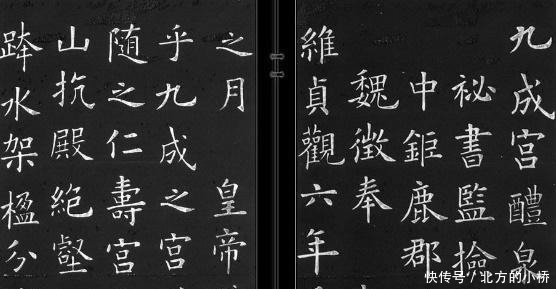 九成宮醴泉
祕書監撿
中鉅鹿郡
魏徵奉
維貞觀六年
之月 皇帝
乎九成之宮
随之仁壽宮
山抗殿絕壑
跨水架楹分
快传号 / 北方的小桥